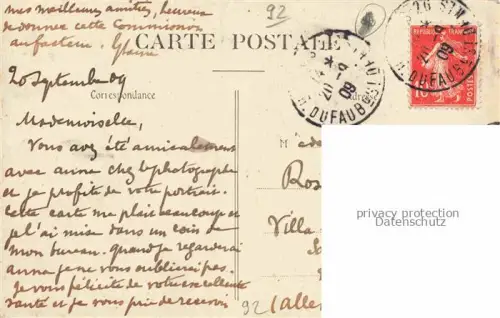 mes meilleures amitiés, heureux
de donner cette Commission
au facteur.
92
CARTE POSTALE
20 Septembre 09
Correspondance
Mademoiselle,
Vous avez été amicalement
avec anna chez le photographe
et je profite de votre portrait.
Cette carte me plait beaucoup et
je l'ai mise dans un coin de
mon bureau. quand je regarderai
anna je ne vous oublierai pas.
Je vous félicite de votre excellente
santé et je vous prie de recevoir
Ros
Villa
92 (alle
privacy protection
Datenschutz
R. DU FAUBG ST
20 -9
09
R. DU FAUBG ST
09
POSTES
10